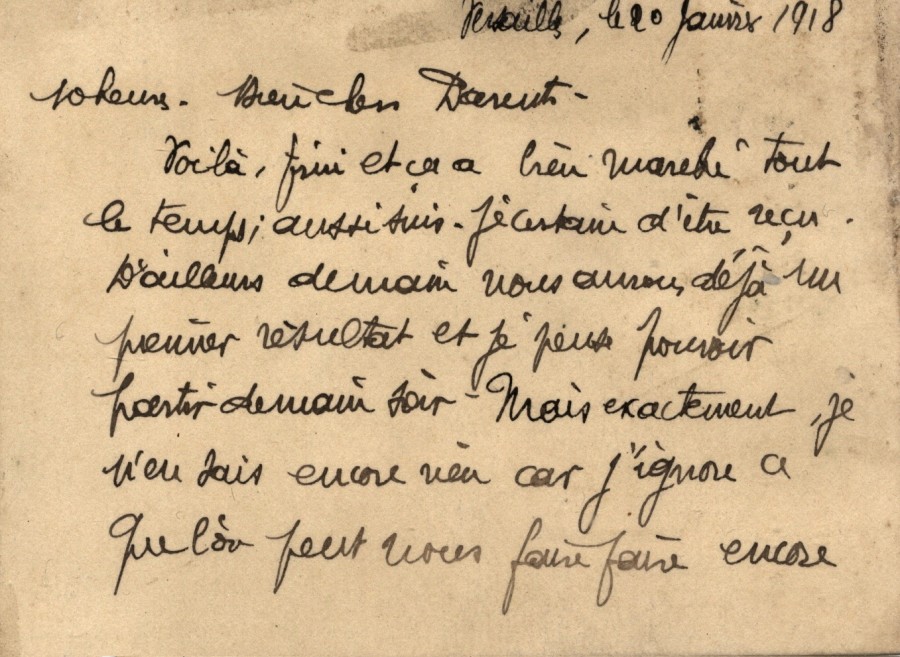 Versailles, le 20 Janvier 1918
10 heures. Bien chers Parents -
Voilà, fini et ça a bien marché tout
le temps; aussi suis-je certain d'être reçu.
D'ailleurs demain nous aurons déjà un
premier résultat et je pense pouvoir
partir demain soir - Mais exactement, je
n'en sais encore rien car j'ignore ce
que l'on peut nous faire faire encore